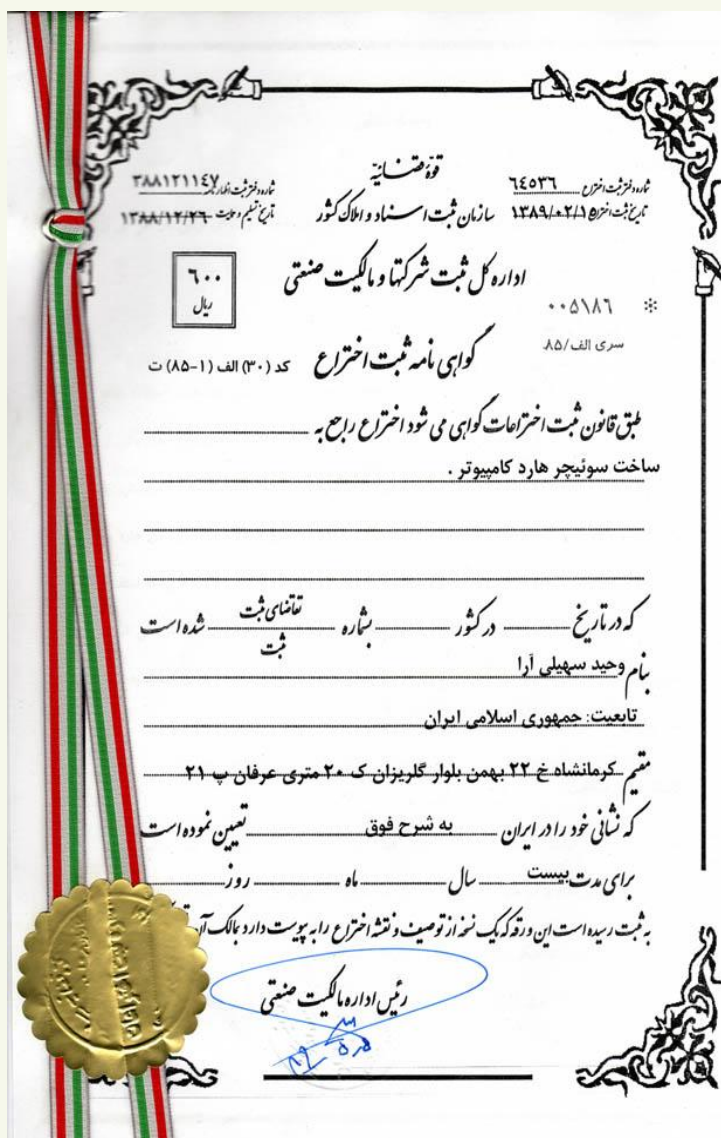 قوه قضائیه
سازمان ثبت اسناد و املاک کشور
شماره دفتر ثبت اختراع ٦٤٥٣٦
تاریخ ثبت اختراع ۱۳۸۹/۰۲/۱۵
شماره دفتر ثبت اظهارنامه ۳۸۸۱۲۱۱٤۷
تاریخ تسلیم و حمایت ۱۳۸۸/۱۲/۲۶
اداره کل ثبت شرکتها و مالکیت صنعتی
۶۰۰
ریال
۰۰۵۱۸۶ *
سری الف/۸۵
گواهی نامه ثبت اختراع
کد (۳۰) الف (۱-۸۵) ت
طبق قانون ثبت اختراعات گواهی می شود اختراع راجع به
ساخت سوئیچر هارد کامپیوتر .
که در تاریخ در کشور بشماره تقاضای ثبت شده است
ثبت
بنام وحید سهیلی آرا
تابعیت: جمهوری اسلامی ایران
مقیم کرمانشاه خ ۲۲ بهمن بلوار گلریزان ک ۲۰ متری عرفان پ ۲۱
که نشانی خود را در ایران به شرح فوق تعیین نموده است
برای مدت بیست سال ماه روز
به ثبت رسیده است این ورقه که یک نسخه از توصیف و نقشه اختراع را به پیوست دارد بمالک آن
رئیس اداره مالکیت صنعتی